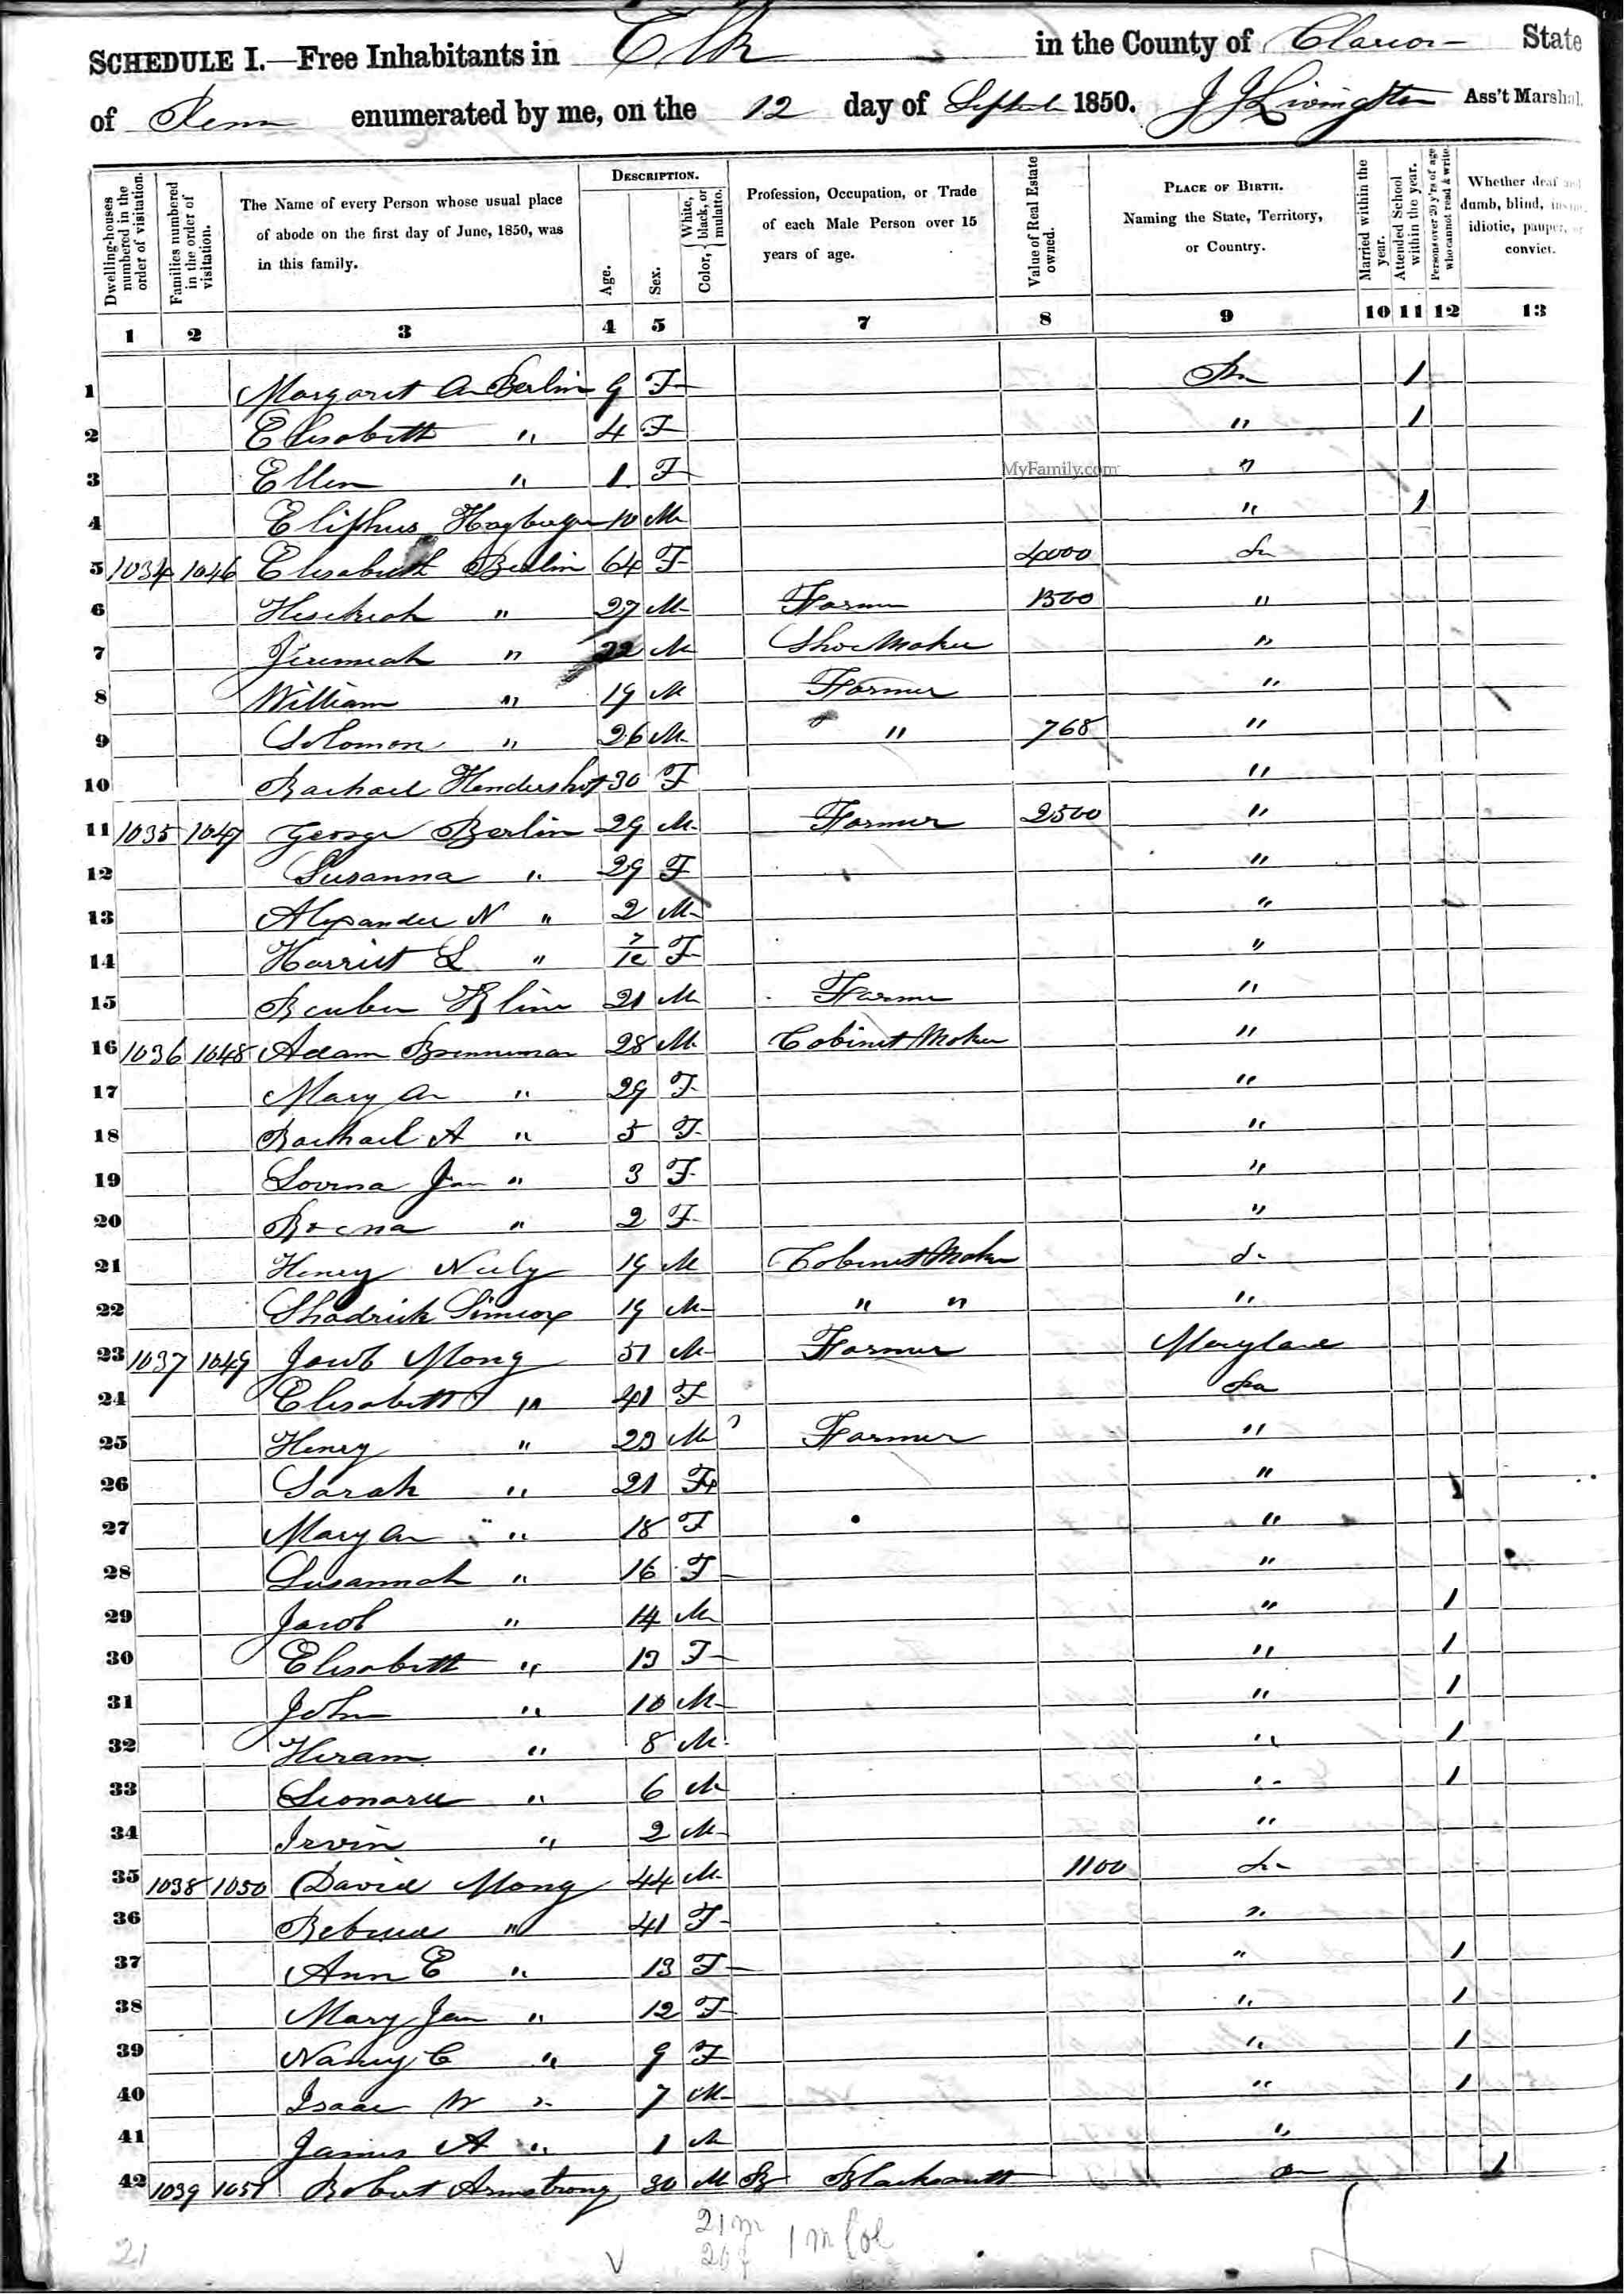 SCHEDULE I.—Free Inhabitants in Elk in the County of Clarion State
of Penn enumerated by me, on the 12 day of Septeb 1850. J J Livingston Ass't Marshal.
Dwelling-houses numbered in the order of visitation. Families numbered in the order of visitation. The Name of every Person whose usual place of abode on the first day of June, 1850, was in this family. DESCRIPTION. Age. Sex. Color, { White, black, or mulatto. Profession, Occupation, or Trade of each Male Person over 15 years of age. Value of Real Estate owned. PLACE OF BIRTH. Naming the State, Territory, or Country. Married within the year. Attended School within the year. Persons over 20 y'rs of age who cannot read & write. Whether deaf and dumb, blind, insane, idiotic, pauper, or convict.
1 2 3 4 5 7 8 9 10 11 12 13
1 Margaret An Berlin 9 F Pn 1
2 Elisabeth " 4 F " 1
3 Ellen " 1 F "
MyFamily.com
4 Eliphus 10 M " 1
5 1034 1046 Elisabeth Berlin 64 F 4000
6 Hesekiah " 27 M Farmer 1500 "
7 Jeremiah " 22 M Shoe Maker "
8 William " 19 M Farmer "
9 Solomon " 26 M " 768 "
10 Rachael Hendershot 30 F "
11 1035 1047 George Berlin 29 M Farmer 2500 "
12 Susanna " 29 F "
13 Alexander N " 2 M "
14 Harriet L " 7/12 F "
15 Reuben Kline 21 M Farmer "
16 1036 1048 Adam Brenneman 28 M Cabinet Maker "
17 Mary An " 29 F "
18 Rachael A " 5 F "
19 Lovina Jan " 3 F "
20 " 2 F "
21 Henry Neely 19 M Cabinet Maker
22 Shadrick Simcox 19 M " " "
23 1037 1049 Jacob Mong 51 M Farmer Maryland
24 Elisabeth " 41 F Pa
25 Henry " 23 M Farmer "
26 Sarah " 21 F "
27 Mary An " 18 F "
28 Susannah " 16 F "
29 Jacob " 14 M " 1
30 Elisabeth " 13 F " 1
31 John " 10 M " 1
32 Hiram " 8 M " 1
33 Leonard " 6 M " 1
34 Irvin " 2 M "
35 1038 1050 David Mong 44 M 1100
36 Rebecca " 41 F "
37 Ann E " 13 F " 1
38 Mary Jan " 12 F " 1
39 Nancy C " 9 F " 1
40 Isaac W " 7 M " 1
41 James A " 1 M "
42 1039 1051 Robert Armstrong 30 M B Blacksmith 1
21 m
20 f 1 m Col
21